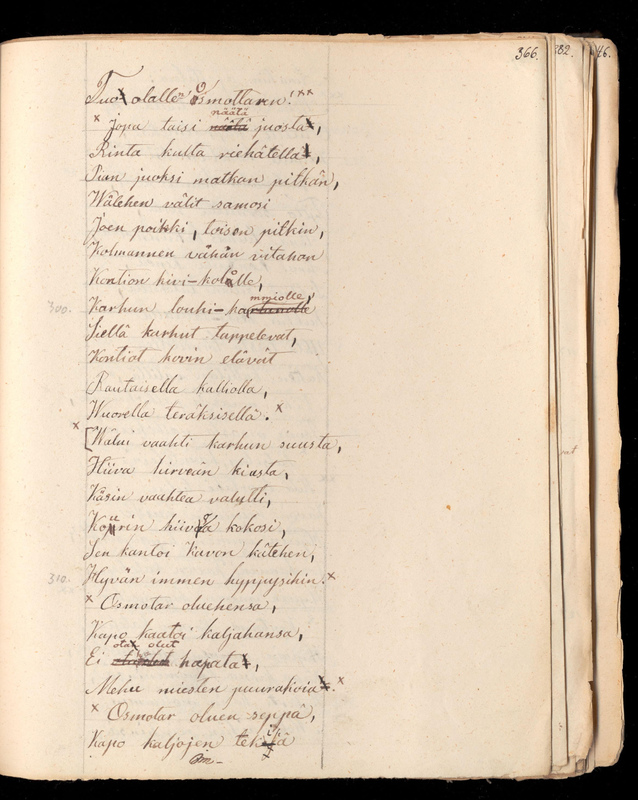 366. 282. 46.
Tuo olalle' Osmottaren!**
näätä
* Jopa taisi näätä juosta,
Rinta kulta viehätellä,
Pian juoksi matkan pitkän,
Wälehen välit samosi
Joen poikki, toisen pitkin,
Kolmannen vähän vitahan
Kontion kivi-kolólle,
mmiolle,
300. Karhun louhi-ka
Siellä karhut tappelevat,
Kontiot kovin elävät
Rautaisella kalliolla,
Wuorella teräksisellä. x
x [Wälui vaahti karhun suusta,
Hiiva hirveän kiasta,
Käsin vaahtea valutti,
Kourin hiivoa kokosi,
Sen kantoi Kavon kätehen,
310. Hyvän immen hyppysihin. x
x Osmotar oluehensa,
Kapo kaatoi kaljahansa,
olut
Ei hapata,
Mehu miesten puurakoia. x
x Osmotar oluen seppä,
Kapo kaljojen tekiä